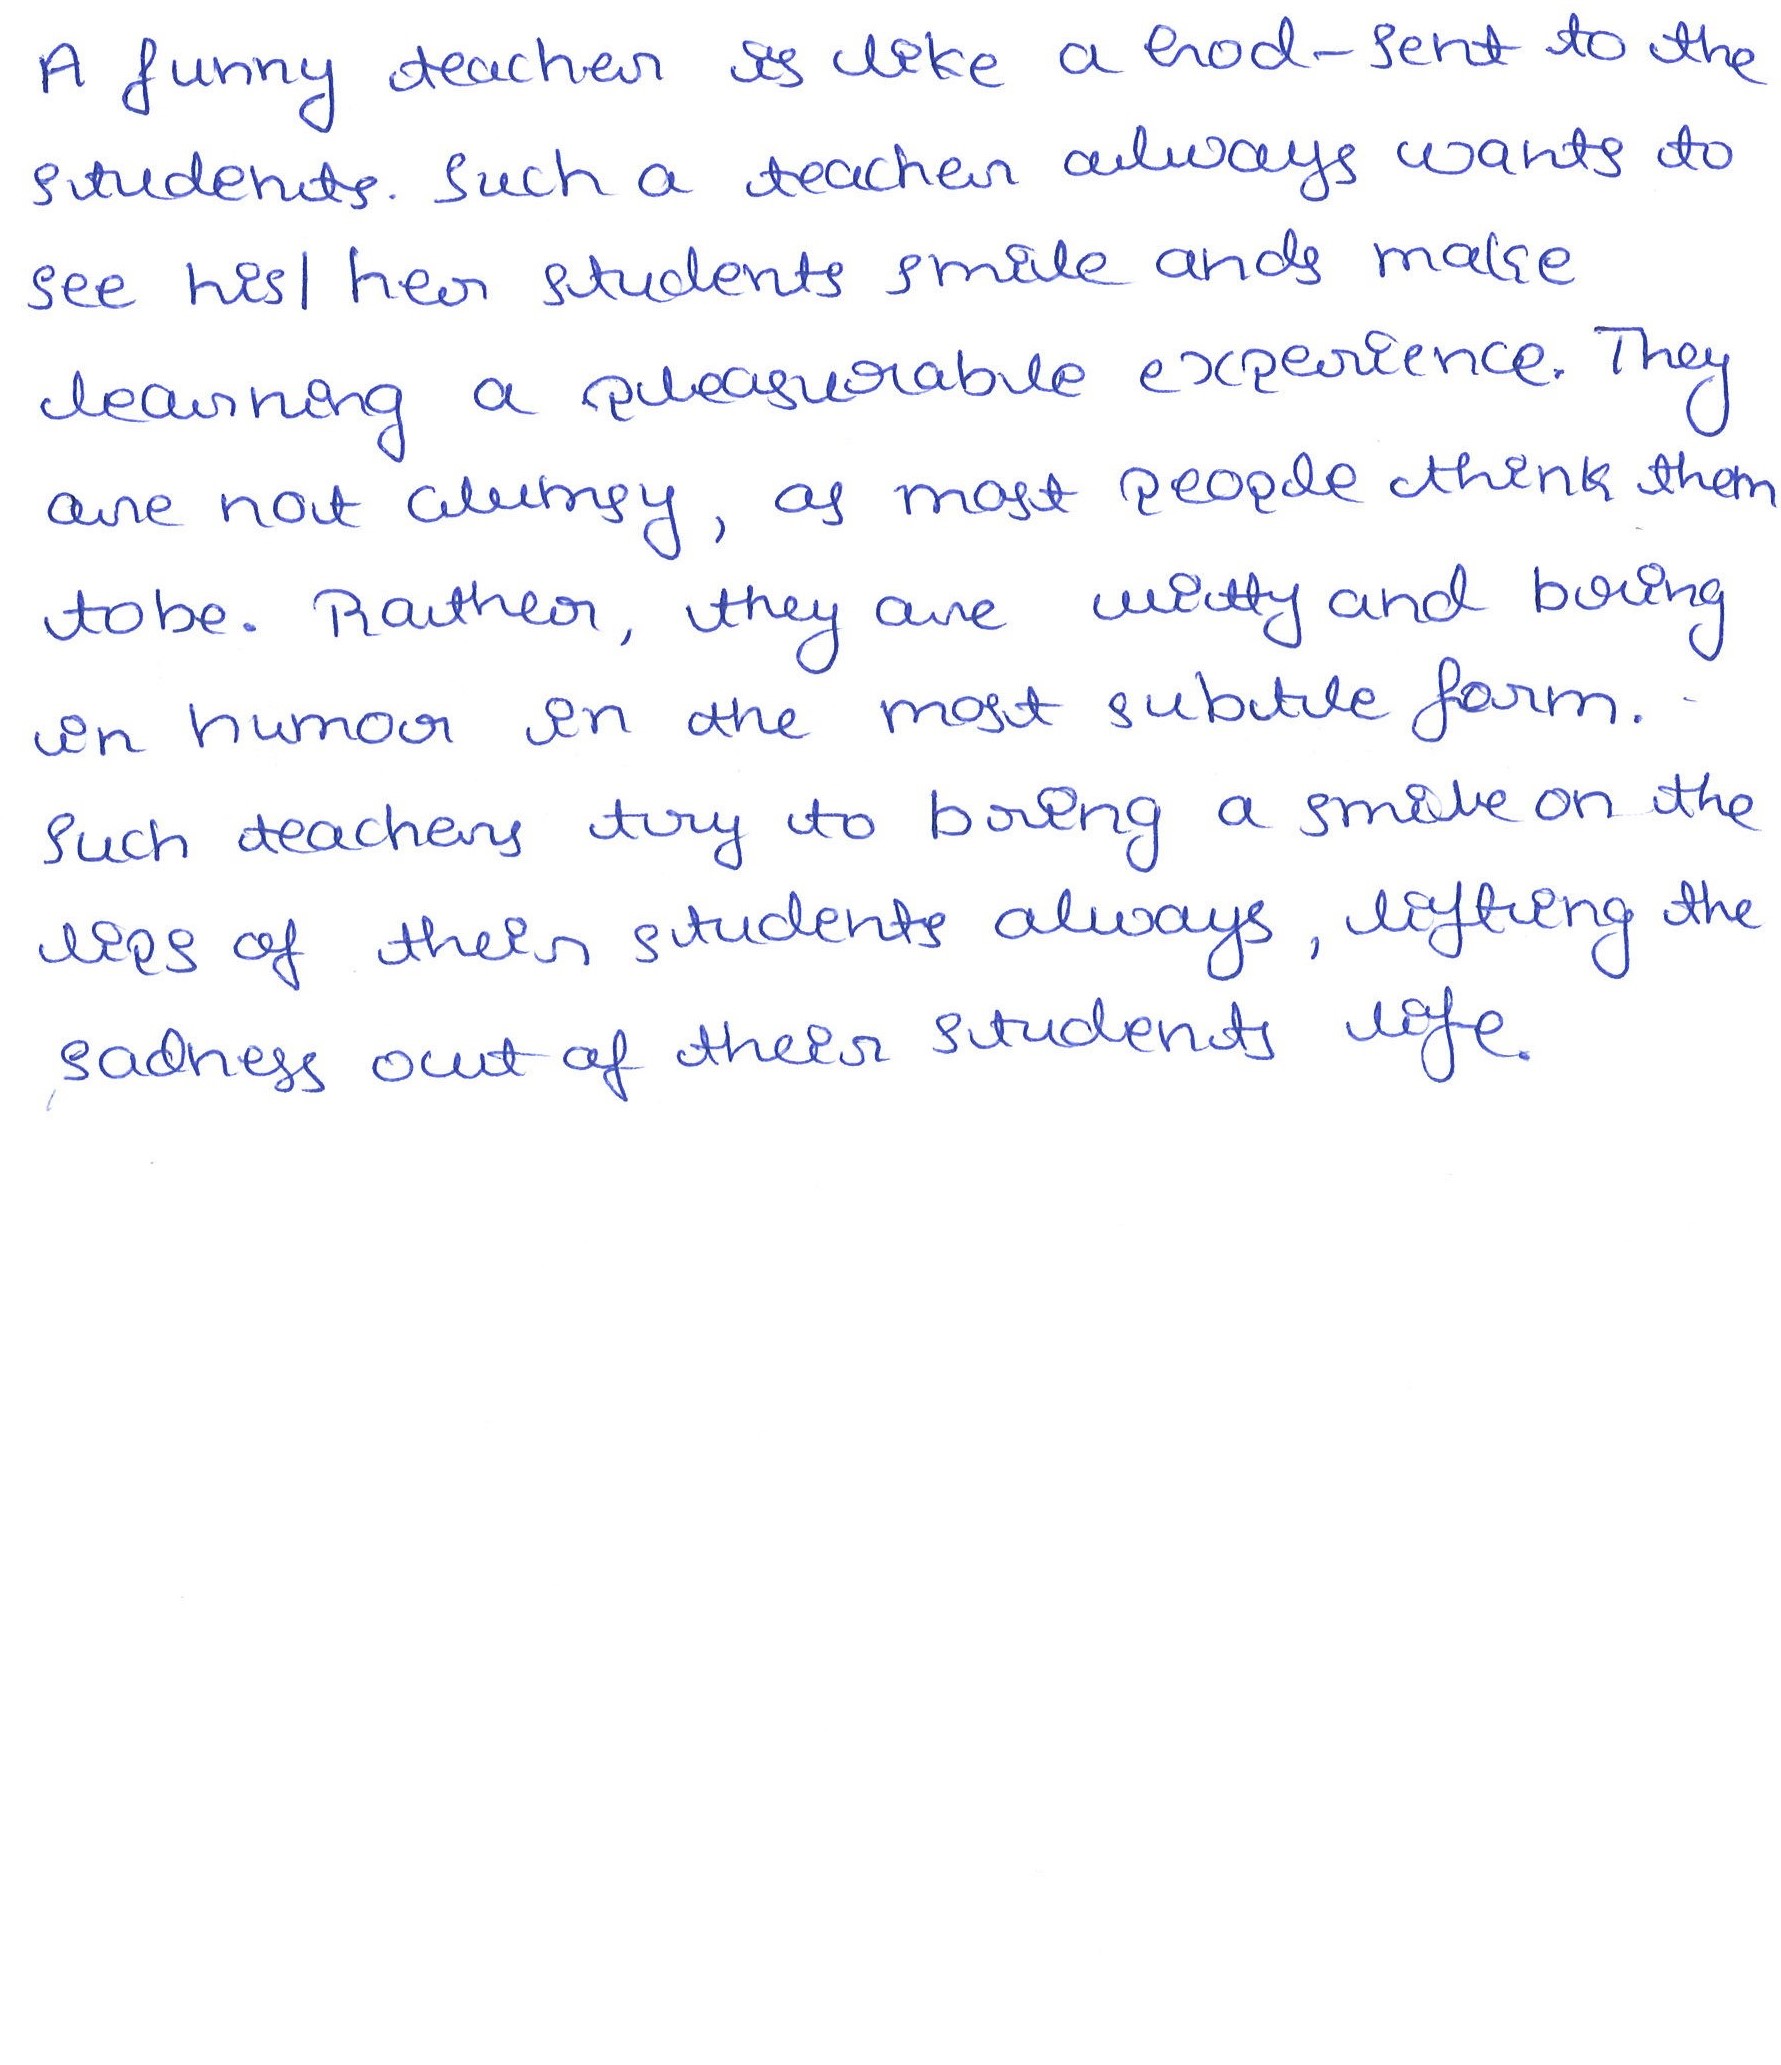 A funny teacher is like a God-sent to the
students. Such a teacher always wants to
see his/ her students smile ands make
learning a pleasurable experience. They
are not clumsy, as most people think them
tobe. Rather, they are witty and bring
in humor in the most subtle form.
Such teachers try to bring a smile on the
lips of their students always, lifting the
sadness out of their students life.